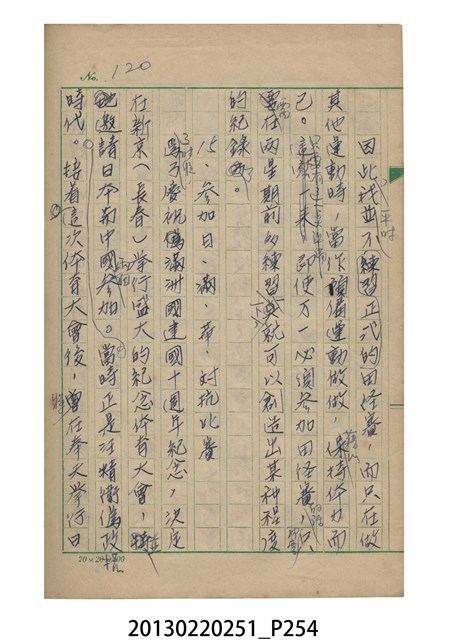 No. 120
因此我並不練習正式的田徑賽,而只在做
平时
其他運動時,當作預備運動做做,保持体力而
藉以
已。這樣一來,即使万一必須參加田徑賽,只
需在兩星期前的練習就可以創造出某种程度
的紀錄了。
15、參加日、滿、華,对抗比賽
為了慶祝偽滿洲國建國十週年紀念,決定
在新京(長春)举行盛大的紀念体育大會,
邀請日本和中國參加。當時正是汪精衛偽政
權
時代。接着這次体育大會後,曾在奉天举行日
20×20=400
20130220251_P254